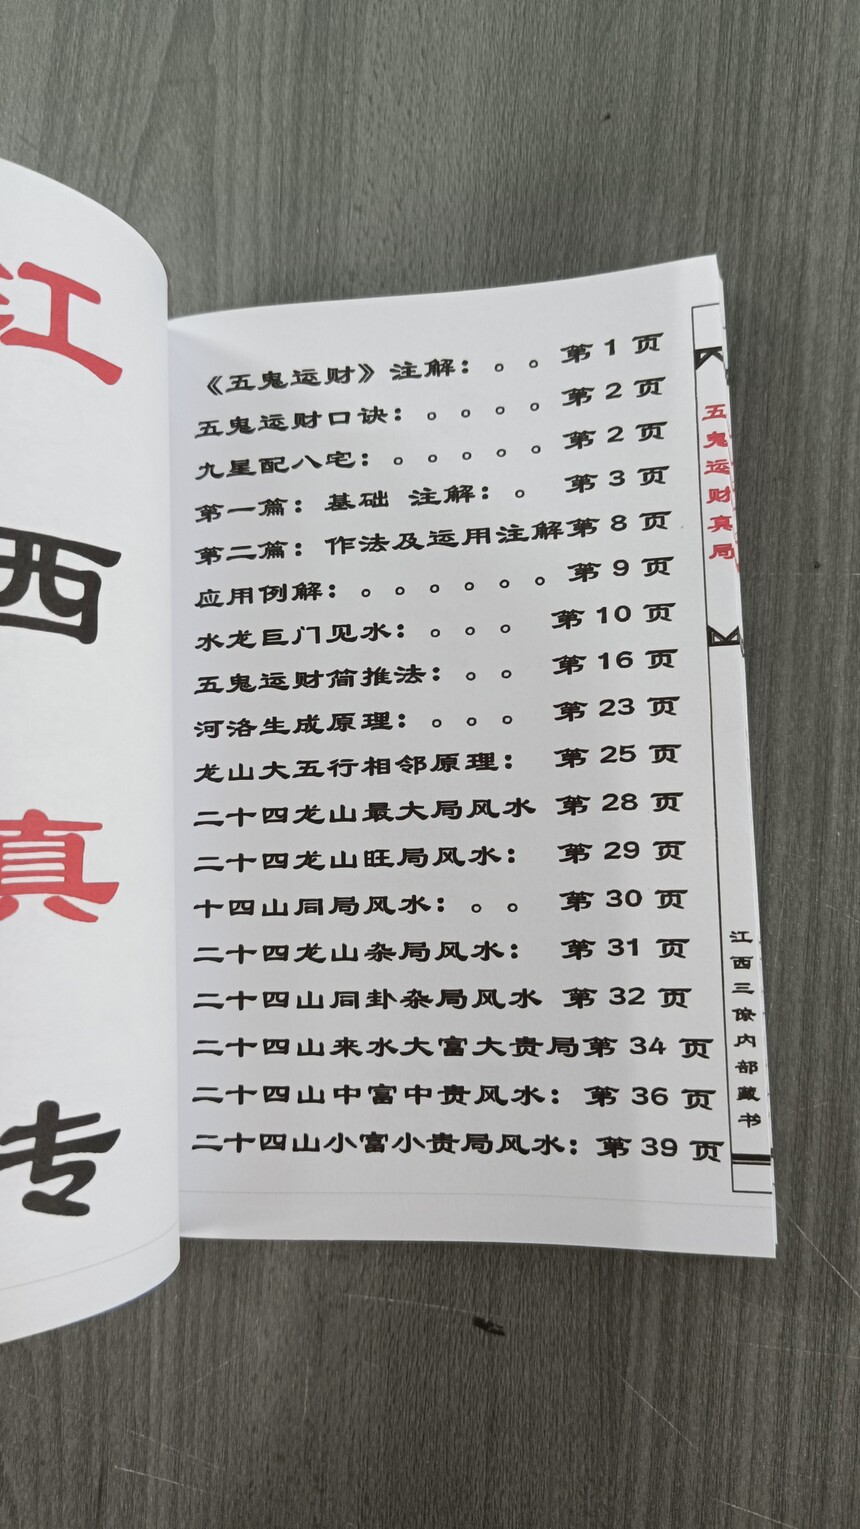 江
西
真
专
《五鬼运财》注解：。。第 1 页
五鬼运财口诀：。。。。第 2 页
九星配八宅：。。。。。第 2 页
第一篇：基础 注解：。 第 3 页
第二篇：作法及运用注解第 8 页
应用例解：。。。。。。第 9 页
水龙巨门见水：。。。 第 10 页
五鬼运财简推法：。。 第 16 页
河洛生成原理：。。。 第 23 页
龙山大五行相邻原理： 第 25 页
二十四龙山最大局风水 第 28 页
二十四龙山旺局风水： 第 29 页
十四山同局风水：。。 第 30 页
二十四龙山杂局风水： 第 31 页
二十四山同卦杂局风水 第 32 页
二十四山来水大富大贵局第 34 页
二十四山中富中贵风水：第 36 页
二十四山小富小贵局风水：第 39 页
五鬼运财真局
江西三僚内部藏书